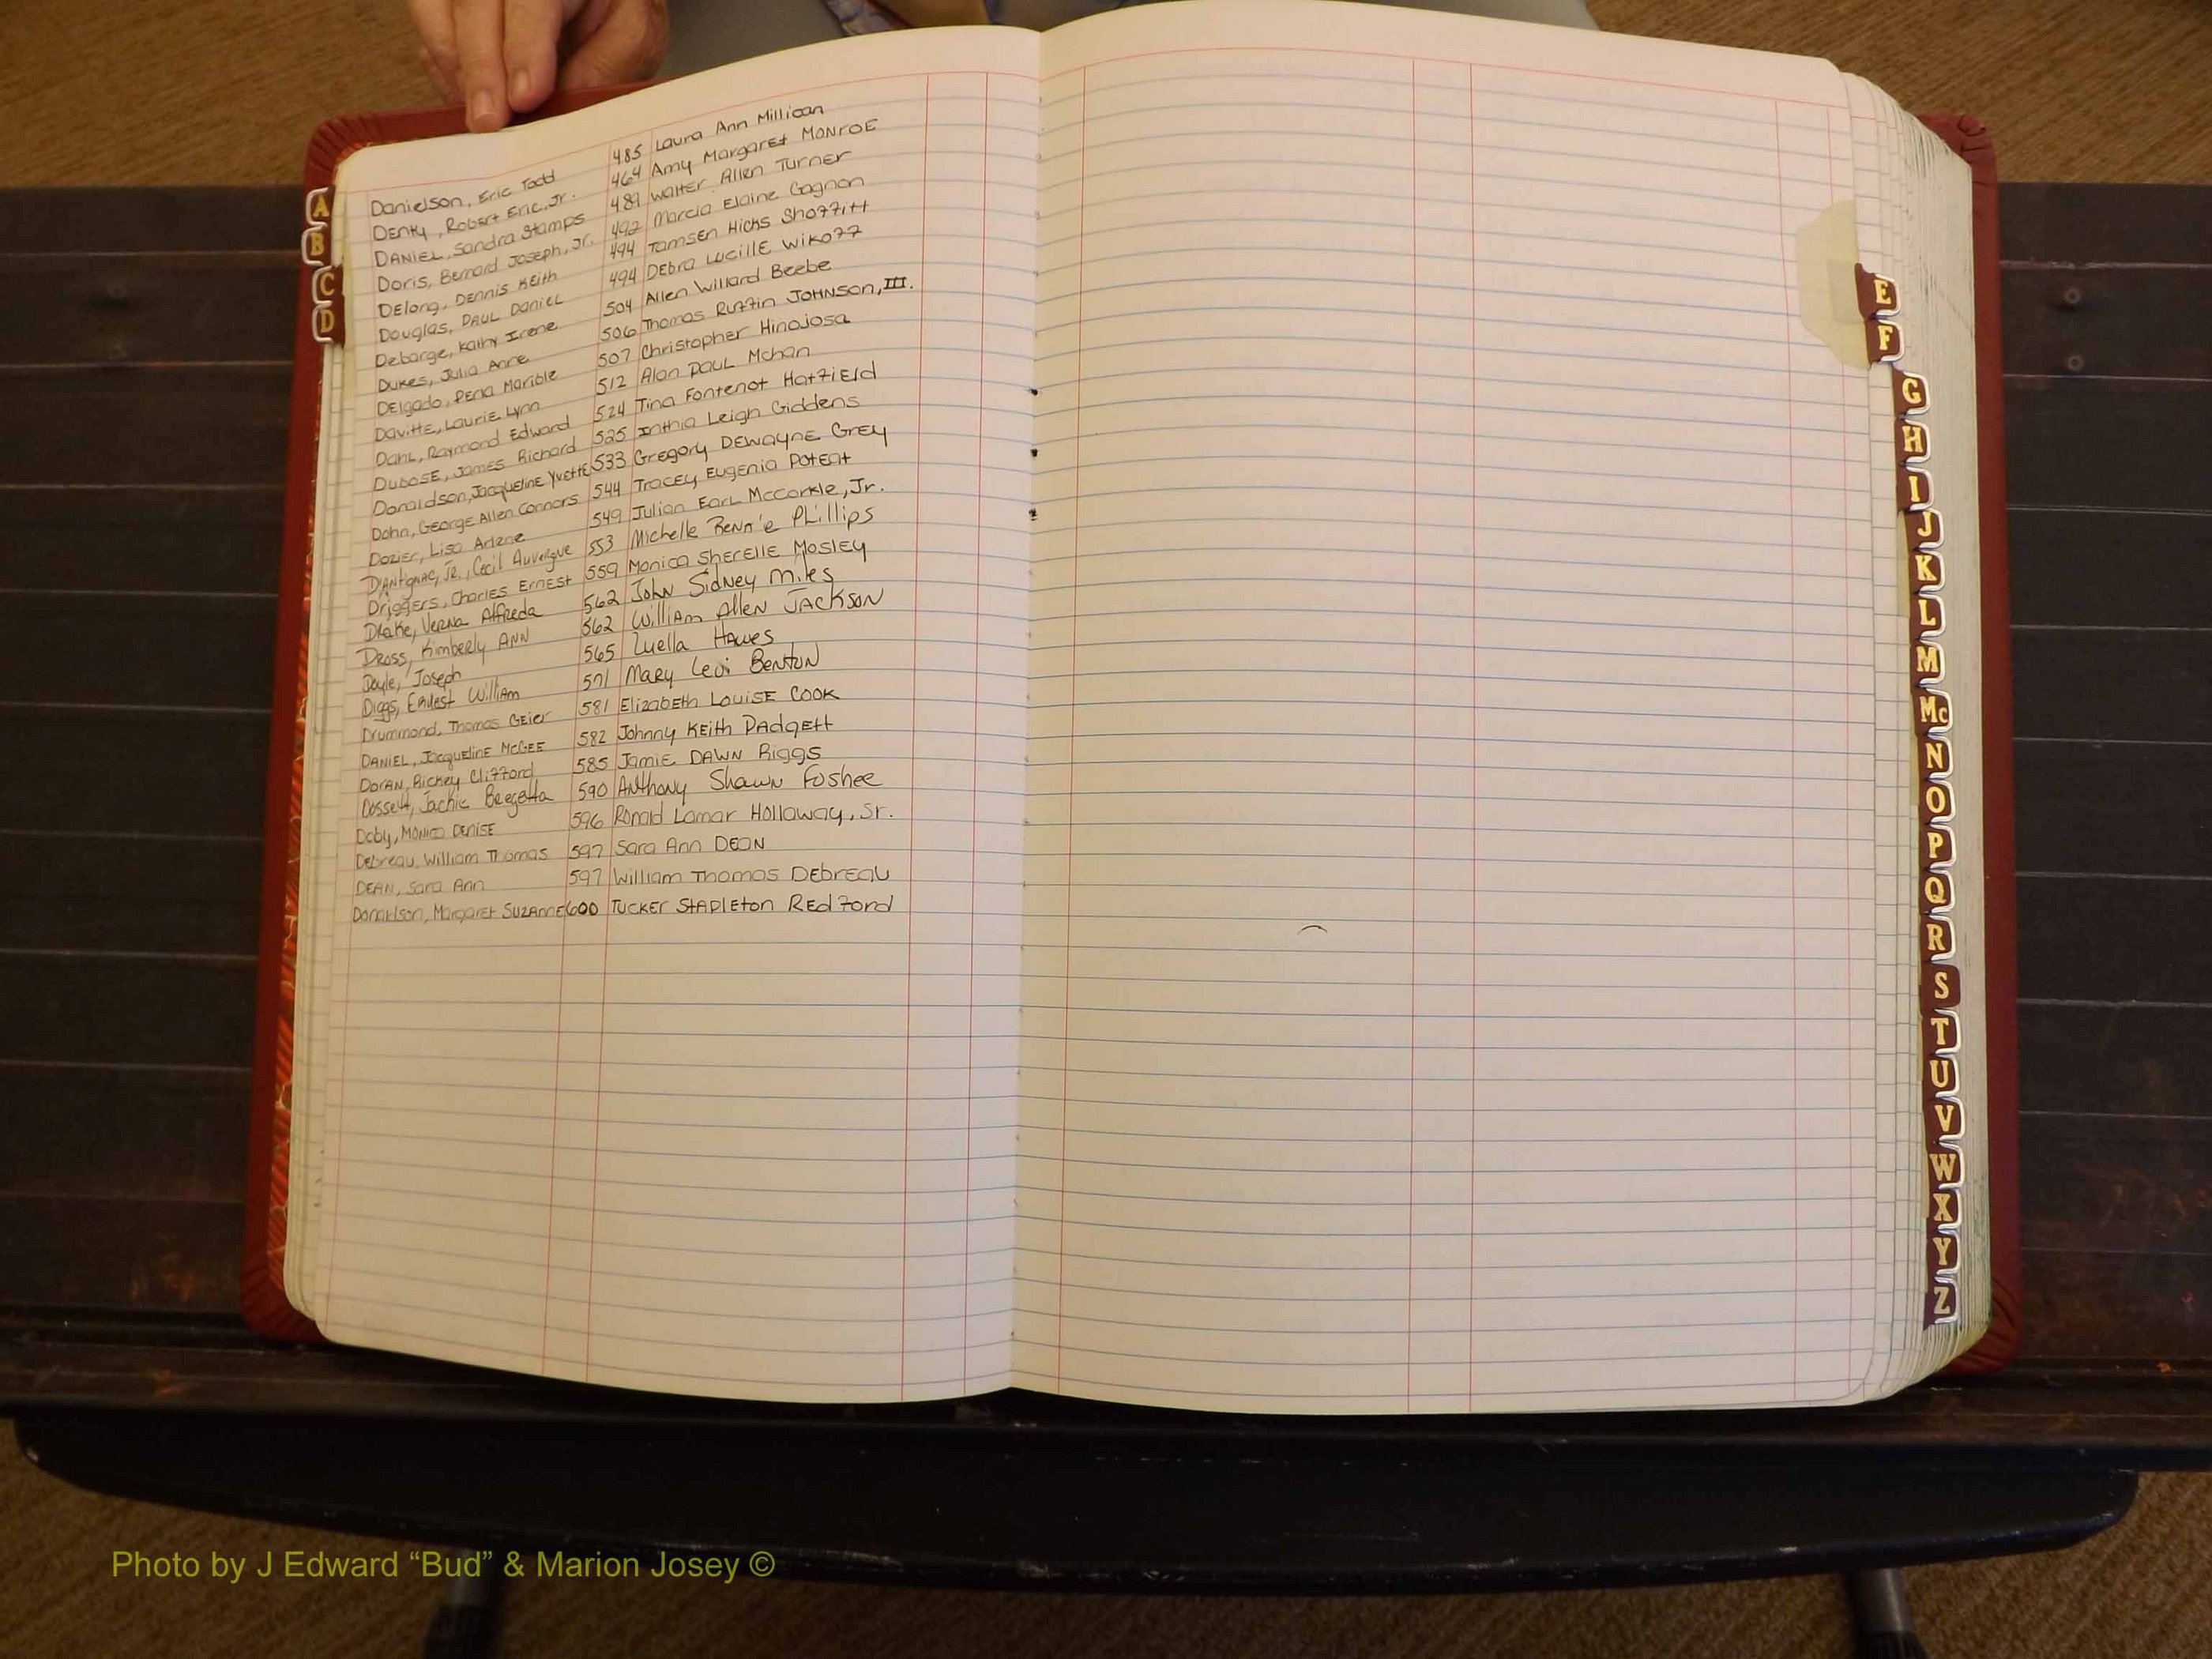 Danielson, Eric Todd 485 Laura Ann Millican
Denty, Robert Eric, Jr. 464 Amy Margaret Monroe
Daniel, Sandra Stamps 489 Walter Allen Turner
Doris, Bernard Joseph, Jr. 492 Marcia Elaine Gagnon
Delong, Dennis Keith 494 Tamsen Hicks Shoffitt
Douglas, Paul Daniel 494 Debra Lucille Wikoff
Debarge, Kathy Irene 504 Allen Willard Beebe
Dukes, Julia Anne 506 Thomas Ruffin Johnson, III.
Delgado, Pena Marible 507 Christopher Hinojosa
Davitte, Laurie Lynn 512 Alan Paul Mchan
Dahl, Raymond Edward 524 Tina Fontenot Hatfield
Dubose, James Richard 525 Inthia Leigh Giddens
Donaldson, Jacqueline Yvette 533 Gregory Dewayne Grey
Dohn, George Allen Connors 544 Tracey Eugenia Poteat
Dozier, Lisa Arlene 549 Julian Earl McCorkle, Jr.
D'Antignac, Jr., Cecil Auvergue 553 Michelle Bennie Phillips
Driggers, Charles Ernest 559 Monica Sherelle Mosley
Drake, Verna Alfreda 562 John Sidney Miles
Dross, Kimberly Ann 562 William Allen Jackson
Doyle, Joseph 565 Luella Hawes
Diggs, Ernest William 571 Mary Levi Benton
Drummond, Thomas Geier 581 Elizabeth Louise Cook
Daniel, Jacqueline McGee 582 Johnny Keith Padgett
Doran, Rickey Clifford 585 Jamie Dawn Riggs
Dossett, Jackie 590 Anthony Shawn Foshee
Doby, Monica Denise 596 Ronald Lamar Hollaway, Sr.
Debreau, William Thomas 597 Sara Ann Dean
Dean, Sara Ann 597 William Thomas Debreau
Donaldson, Margaret Suzanne 600 Tucker Stapleton Redford
A
B
C
D
E
F
G
H
I
J
K
L
M
Mc
N
O
P
Q
R
S
T
U
V
W
X
Y
Z
Photo by J Edward “Bud” & Marion Josey ©